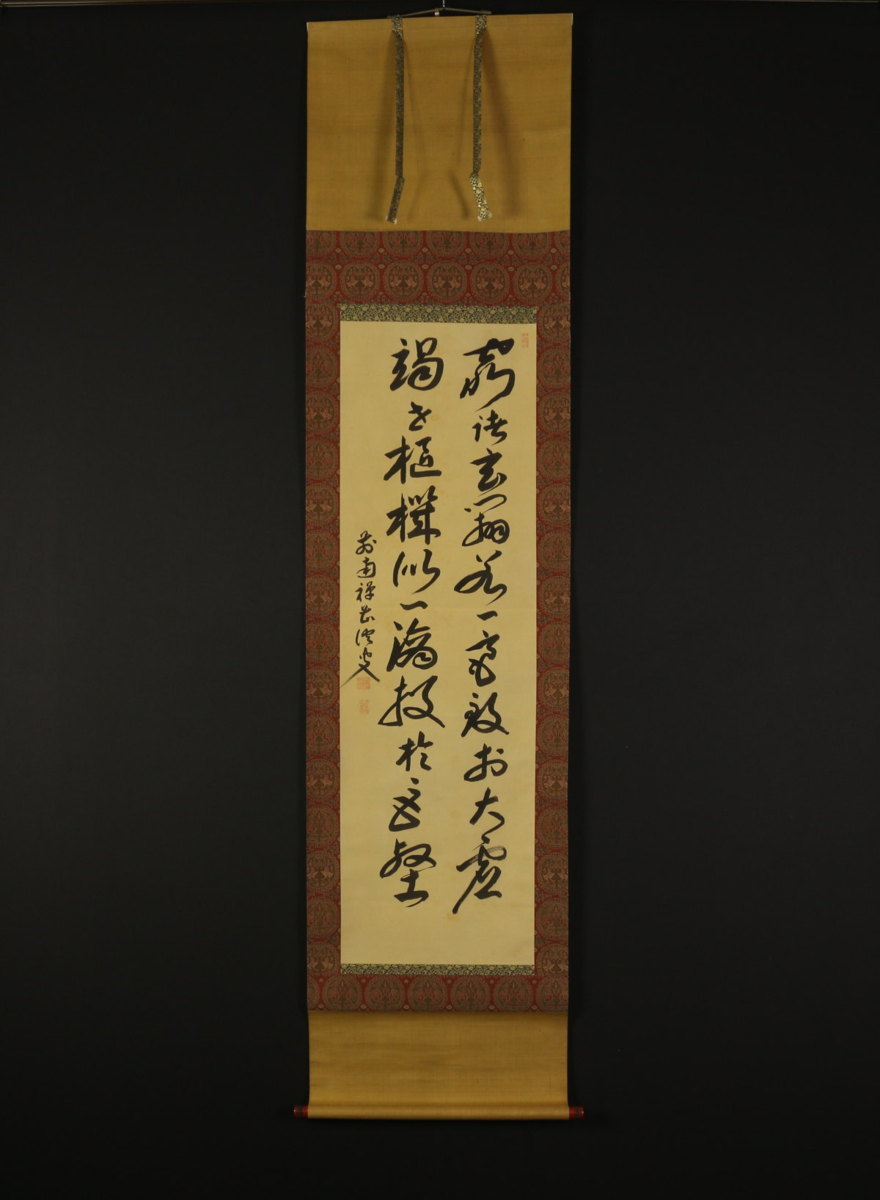 窮諸玄辯若一毫致於太虚
竭世樞機似一滴投於巨壑
前南禪